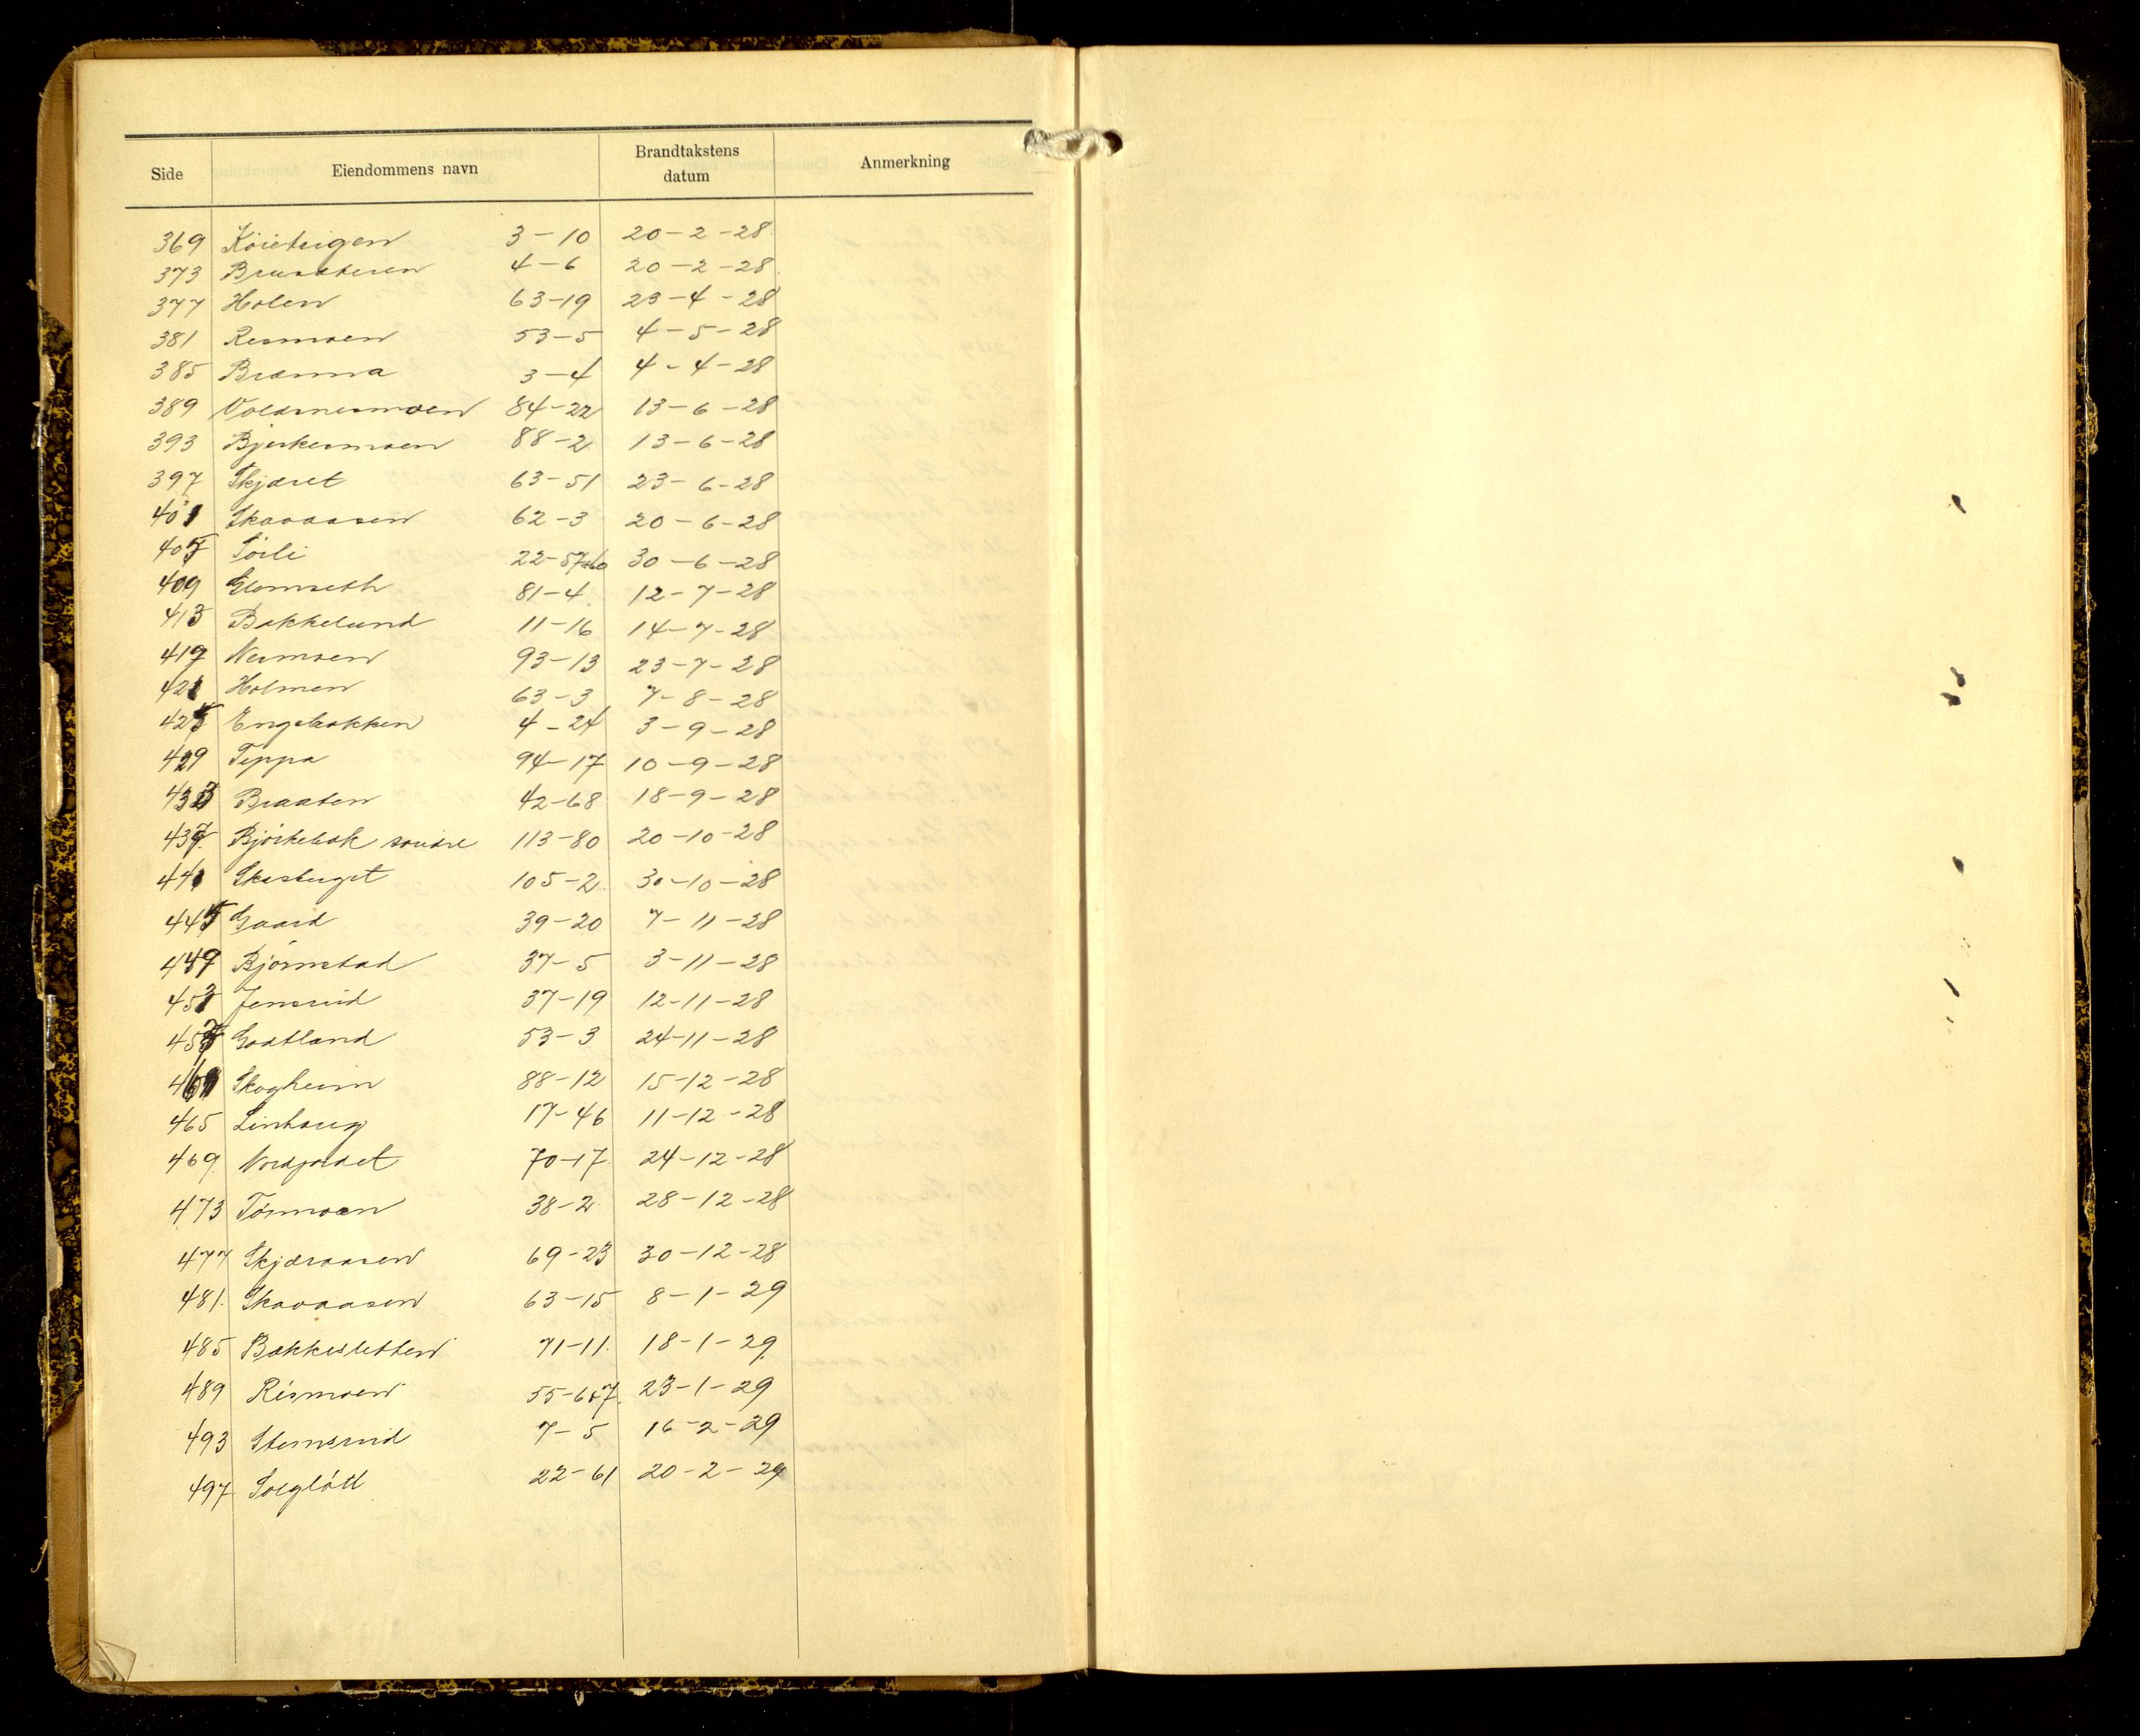 Side Eiendommens navn Brandtakstens datum Anmerkning
369 3-10 20-2-28
373 4-6 20-2-28
377 Holen 63-19 23-4-28
381 Resmoen 53-5 4-5-28
385 Brænna 3-4 4-4-28
389 Voldmesmoen 84-22 13-6-28
393 Bjerkermoen 88-2 13-6-28
397 Skjæret 63-51 23-6-28
401 Skavaasen 62-3 20-6-28
405 Sörli 30-6-28
409 Glomseth 81-4 12-7-28
413 Bakkelund 11-16 14-7-28
417 Nermoen 93-13 23-7-28
421 Holmen 63-3 7-8-28
425 Engebakken 4-24 3-9-28
429 Teppa 94-17 10-9-28
433 Braaten 42-68 18-9-28
437 Björkebak söndre 113-80 20-10-28
441 105-2 30-10-28
445 Gaard 39-20 7-11-28
449 Björnstad 37-5 3-11-28
453 Jensrud 37-19 12-11-28
457 Godtland 53-3 24-11-28
461 Skogheim 88-12 15-12-28
465 Linhaug 17-46 11-12-28
469 Nordjordet 70-17 24-12-28
473 Törmoen 38-2 28-12-28
477 Skjæraasen 69-23 30-12-28
481. Skavaasen 63-15 8-1-29
485 Bakkesletten 71-11. 18-1-29
489 Rismoen 55-6+7. 23-1-29
493 Stemsrud 7-5 16-2-29
497 Solglött 22-61 20-2-29